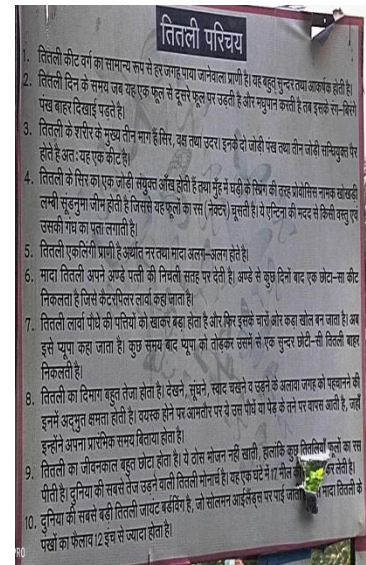 तितली परिचय
1. तितली कीट वर्ग का सामान्य रूप से हर जगह पाया जानेवाला प्राणी है। यह बहुत सुन्दर तथा आकर्षक होती है।
2. तितली दिन के समय जब यह एक फूल से दूसरे फूल पर उड़ती है और मधुपान करती है तब इसके रंग-बिरंगे
पंख बाहर दिखाई पड़ते है।
3. तितली के शरीर के मुख्य तीन भाग हैं सिर, वक्ष तथा उदर। इनके दो जोड़ी पंख तथा तीन जोड़ी सन्धियुक्त पैर
होते है अतः यह एक कीट है।
4. तितली के सिर का एक जोड़ी संयुक्त आँख होती हैं तथा मुँह में घड़ी के स्प्रिंग की तरह प्रोवोसिस नामक खोखली
लम्बी सूंडनुमा जीभ होती है जिससे यह फूलों का रस (नेक्टर) चूसती है। ये एन्टिना की मदद से किसी वस्तु एवं
उसकी गंध का पता लगाती है।
5. तितली एकलिंगी प्राणी है अर्थात नर तथा मादा अलग-अलग होते है।
6. मादा तितली अपने अण्डे पत्ती की निचली सतह पर देती है। अण्डे से कुछ दिनों बाद एक छोटा-सा कीट
निकलता है जिसे कैटरपिलर लार्वा कहा जाता है।
7. तितली लार्वा पौधे की पत्तियों को खाकर बड़ा होता है और फिर इसके चारों ओर कडा खोल बन जाता है। अब
इसे प्यूपा कहा जाता है। कुछ समय बाद प्यूपा को तोड़कर उसमें से एक सुन्दर छोटी-सी तितली बाहर
निकलती है।
8. तितली का दिमाग बहुत तेजा होता है। देखने, सूंघने, स्वाद चखने व उड़ने के अलावा जगह को पहचानने की
इनमें अद्भुत क्षमता होती है। वयस्क होने पर आमतौर पर ये उस पौधे या पेड़ के तने पर वापस आती है, जहाँ
इन्होंने अपना प्रारंभिक समय बिताया होता है।
9. तितली का जीवनकाल बहुत छोटा होता है। ये ठोस भोजन नही खाती, हालांकि कुछ तितलियाँ फूलों का रस
पीती है। दुनिया की सबसे तेज उड़ने वाली तितली मोनार्च है। यह एक घंटे में 17 मील लेती है।
10. दुनिया की सबसे बड़ी तितली जायंट बर्डविंग है, जो सोलमन आईलैंड्स पर पाई जाती मादा तितली के
पंखों का फैलाव 12 इंच से ज्यादा होता है।
PRO